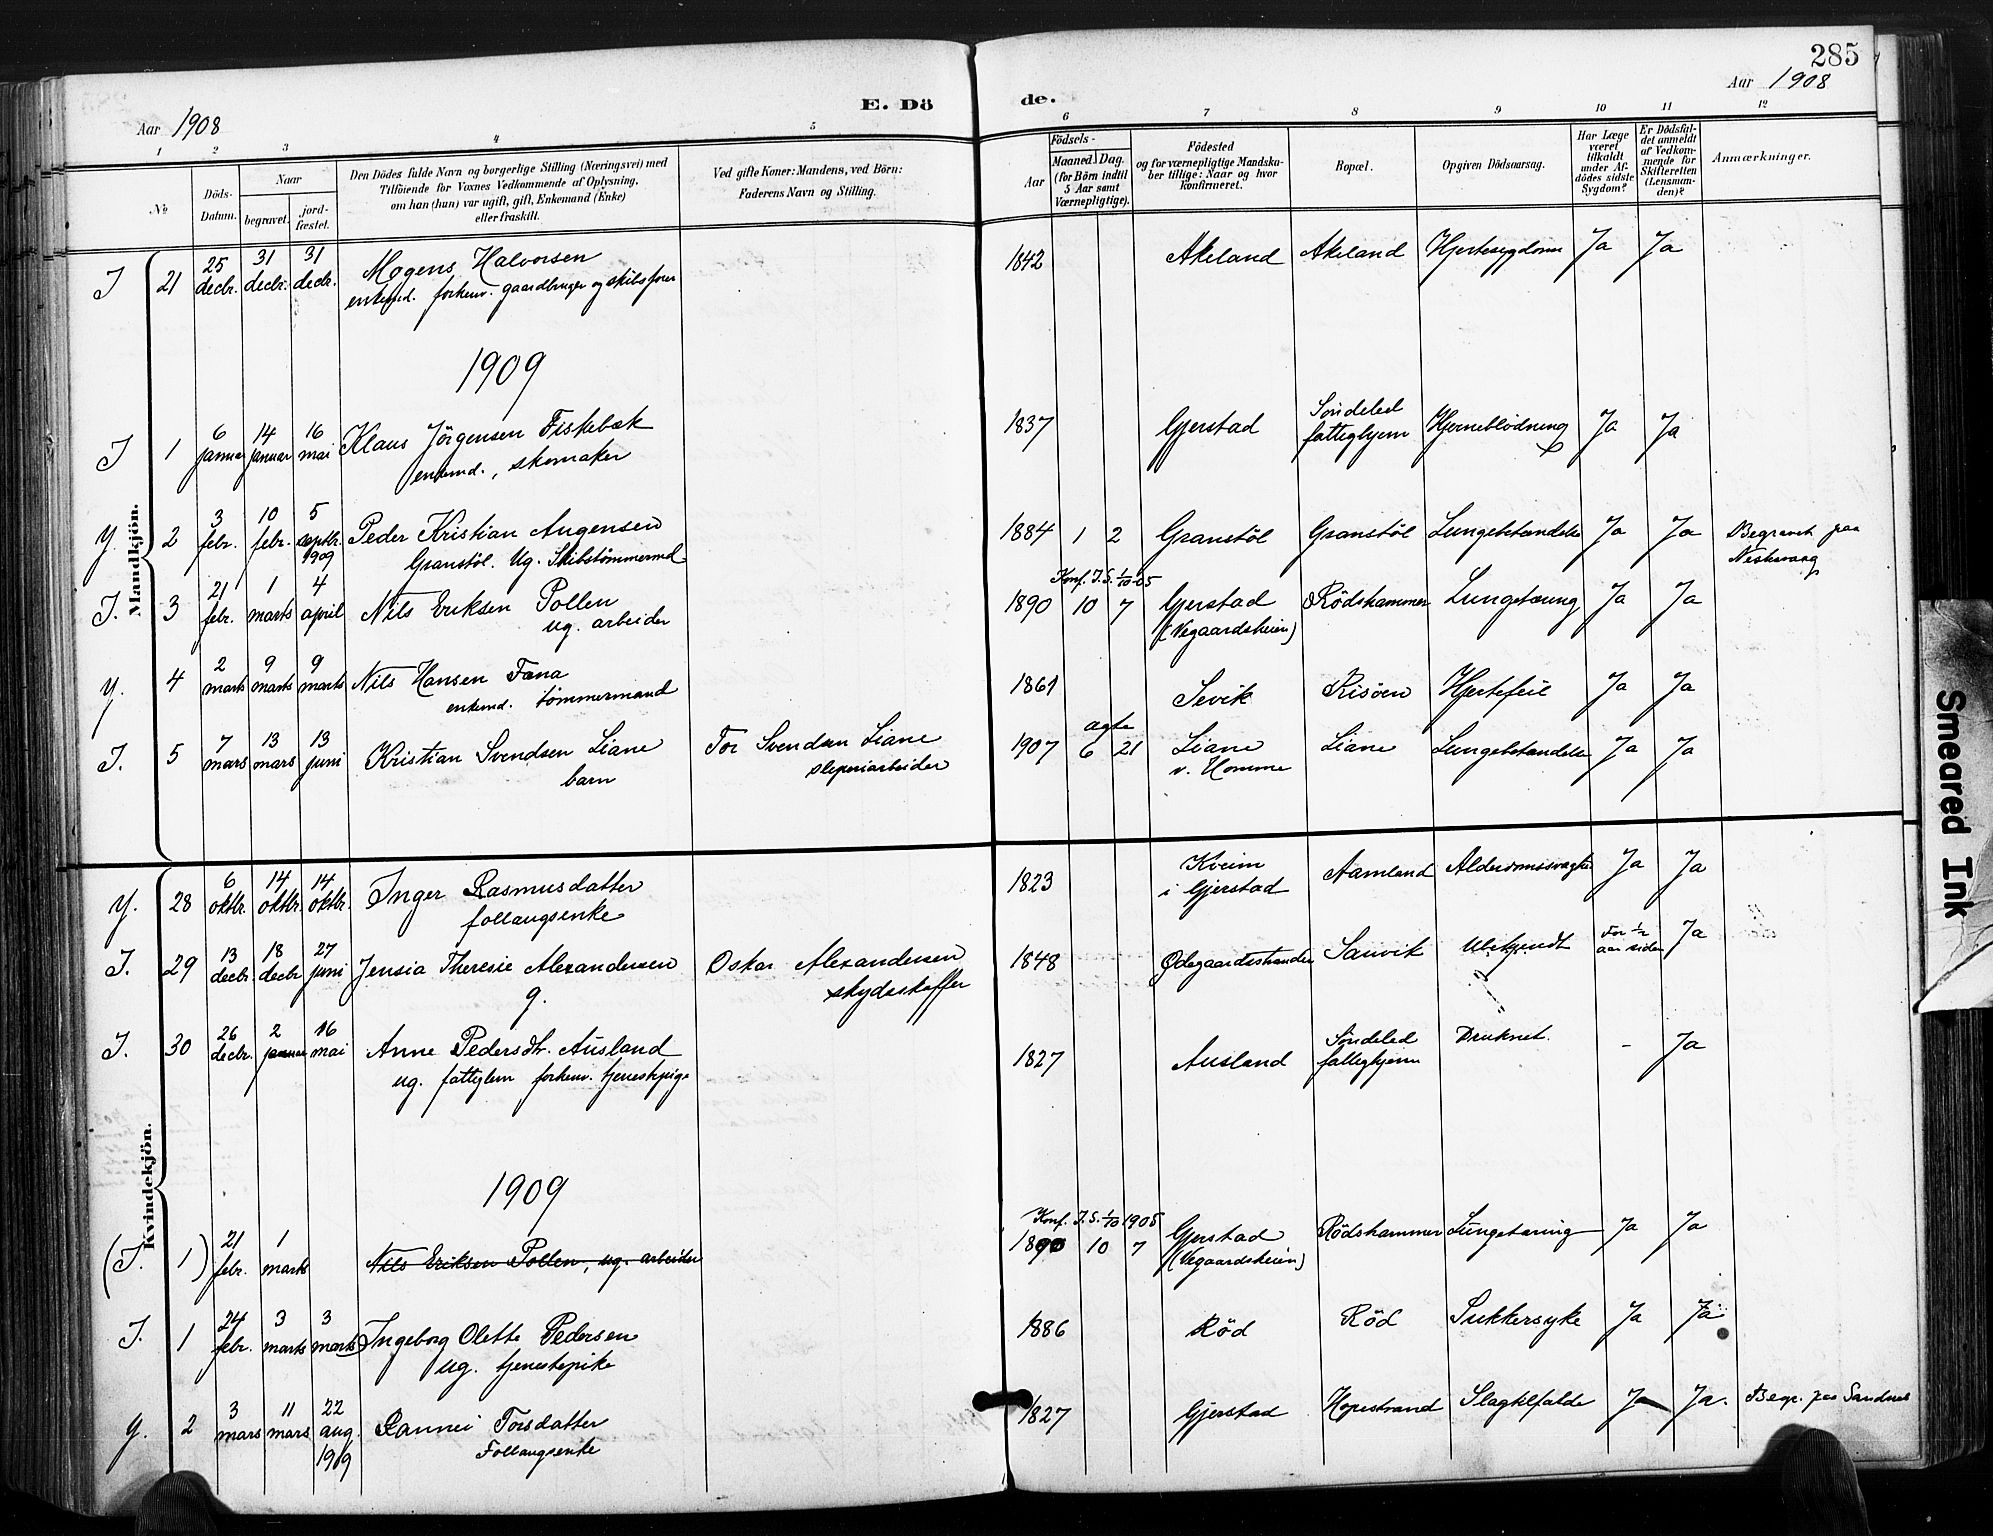 285
Aar 1908
E. Dö
de.
Aar 1908
1 2 3 4 5 6 7 8 9 10 11 12
No
Döds-Datum.
Naar
begravet.
jord-fæstet.
Den Dödes fulde Navn og borgerlige Stilling (Næringsvei) med
Tilföiende for Voxnes Vedkommende af Oplysning,
om han (hun) var ugift, gift, Enkemand (Enke)
eller fraskilt.
Ved gifte Koner: Mandens, ved Börn:
Faderens Navn og Stilling.
Födsels-
Aar
Maaned. Dag.
(for Börn indtil
5 Aar samt
Værnepligtige).
Födested
og for værnepligtige Mandska-
ber tillige: Naar og hvor
konfirmeret.
Bopæl.
Opgiven Dödsaarsag.
Har Læge
været
tilkaldt
under Af-
dödes sidste
Sygdom?
Er Dödsfal-
det anmeldt
af Vedkom-
mende for
Skifteretten
(Lensman-
den)?
Anmærkninger.
Mandkjön.
I 21 25 decbr. 31 decbr. 31 decbr. Mogens Halvorsen 1842 Akeland Akeland Hjertesygdom Ja Ja
enkemd. forhenv. gaardbruger og skibsfører
1909
I 1 6 januar 14 januar 16 mai Klaus Jörgensen Fiskebæk 1837 Gjerstad Söndeled fattighjem Hjerneblödning Ja Ja
enkemd., skomaker
Y. 2 3 febr. 10 febr. 5 septbr. 1909 Peder Kristian Augensen 1884 1 2 Granstöl Granstöl Lungebetændelse Ja Ja Begravet paa
Granstöl. Ug. Skibstömmermd.
Konf. I.S. 1/10-05
I. 3 21 febr. 1 marts 4 april Nils Eriksen Pollen 1890 10 7 Gjerstad (Vegaardsheien) Rödshammer Lungetæring Ja Ja
ug. arbeider
Y. 4 2 marts 9 marts 9 marts Nils Hansen Fana 1861 Sevik Risöen Hjertefeil Ja Ja
enkemd. tömmermand
I. 5 7 mars 13 mars 13 juni Kristian Svendsen Liane Tor Svendsen Liane 1907 6 21 Liane v. Homme Liane Lungebetændelse Ja Ja
barn sliperiarbeider
Kvindekjön.
Y. 28 6 oktbr. 14 oktbr. 14 oktbr. Inger Rasmusdatter 1823 Kveim i Gjerstad Aamland Ja Ja
follaugsenke
I. 29 13 decbr. 18 decbr. 27 juni Jensia Theresie Alexandersen Oskar Alexandersen 1848 Ødegaardsstranden Sanvik Ubekjendt for 1/2 aar siden Ja
g. skydsskaffer
I. 30 26 decbr. 2 januar 16 mai Anne Pedersdt. Ausland 1827 Ausland Söndeled fattighjem Druknet. - Ja
ug. fattiglem forhenv. tjenestepige
1909
Konf. I.S. 1/10 1905
(I. 1) 21 febr. 1 marts Nils Eriksen Pollen, ug. arbeider 1890 10 7 Gjerstad (Vegaardsheien) Rödshammer Lungetæring Ja Ja
I. 1 24 febr. 3 marts 3 marts Ingeborg Olette Pedersen 1886 Röd Röd Sukkersyke Ja Ja
ug. tjenestepike
Y. 2 3 mars 11 mars 22 aug. 1909 Rannei Torsdatter 1827 Gjerstad Hopestrand Slagtilfælde Ja Ja. Begr. paa Sandnes
Follaugsenke
Smeared Ink